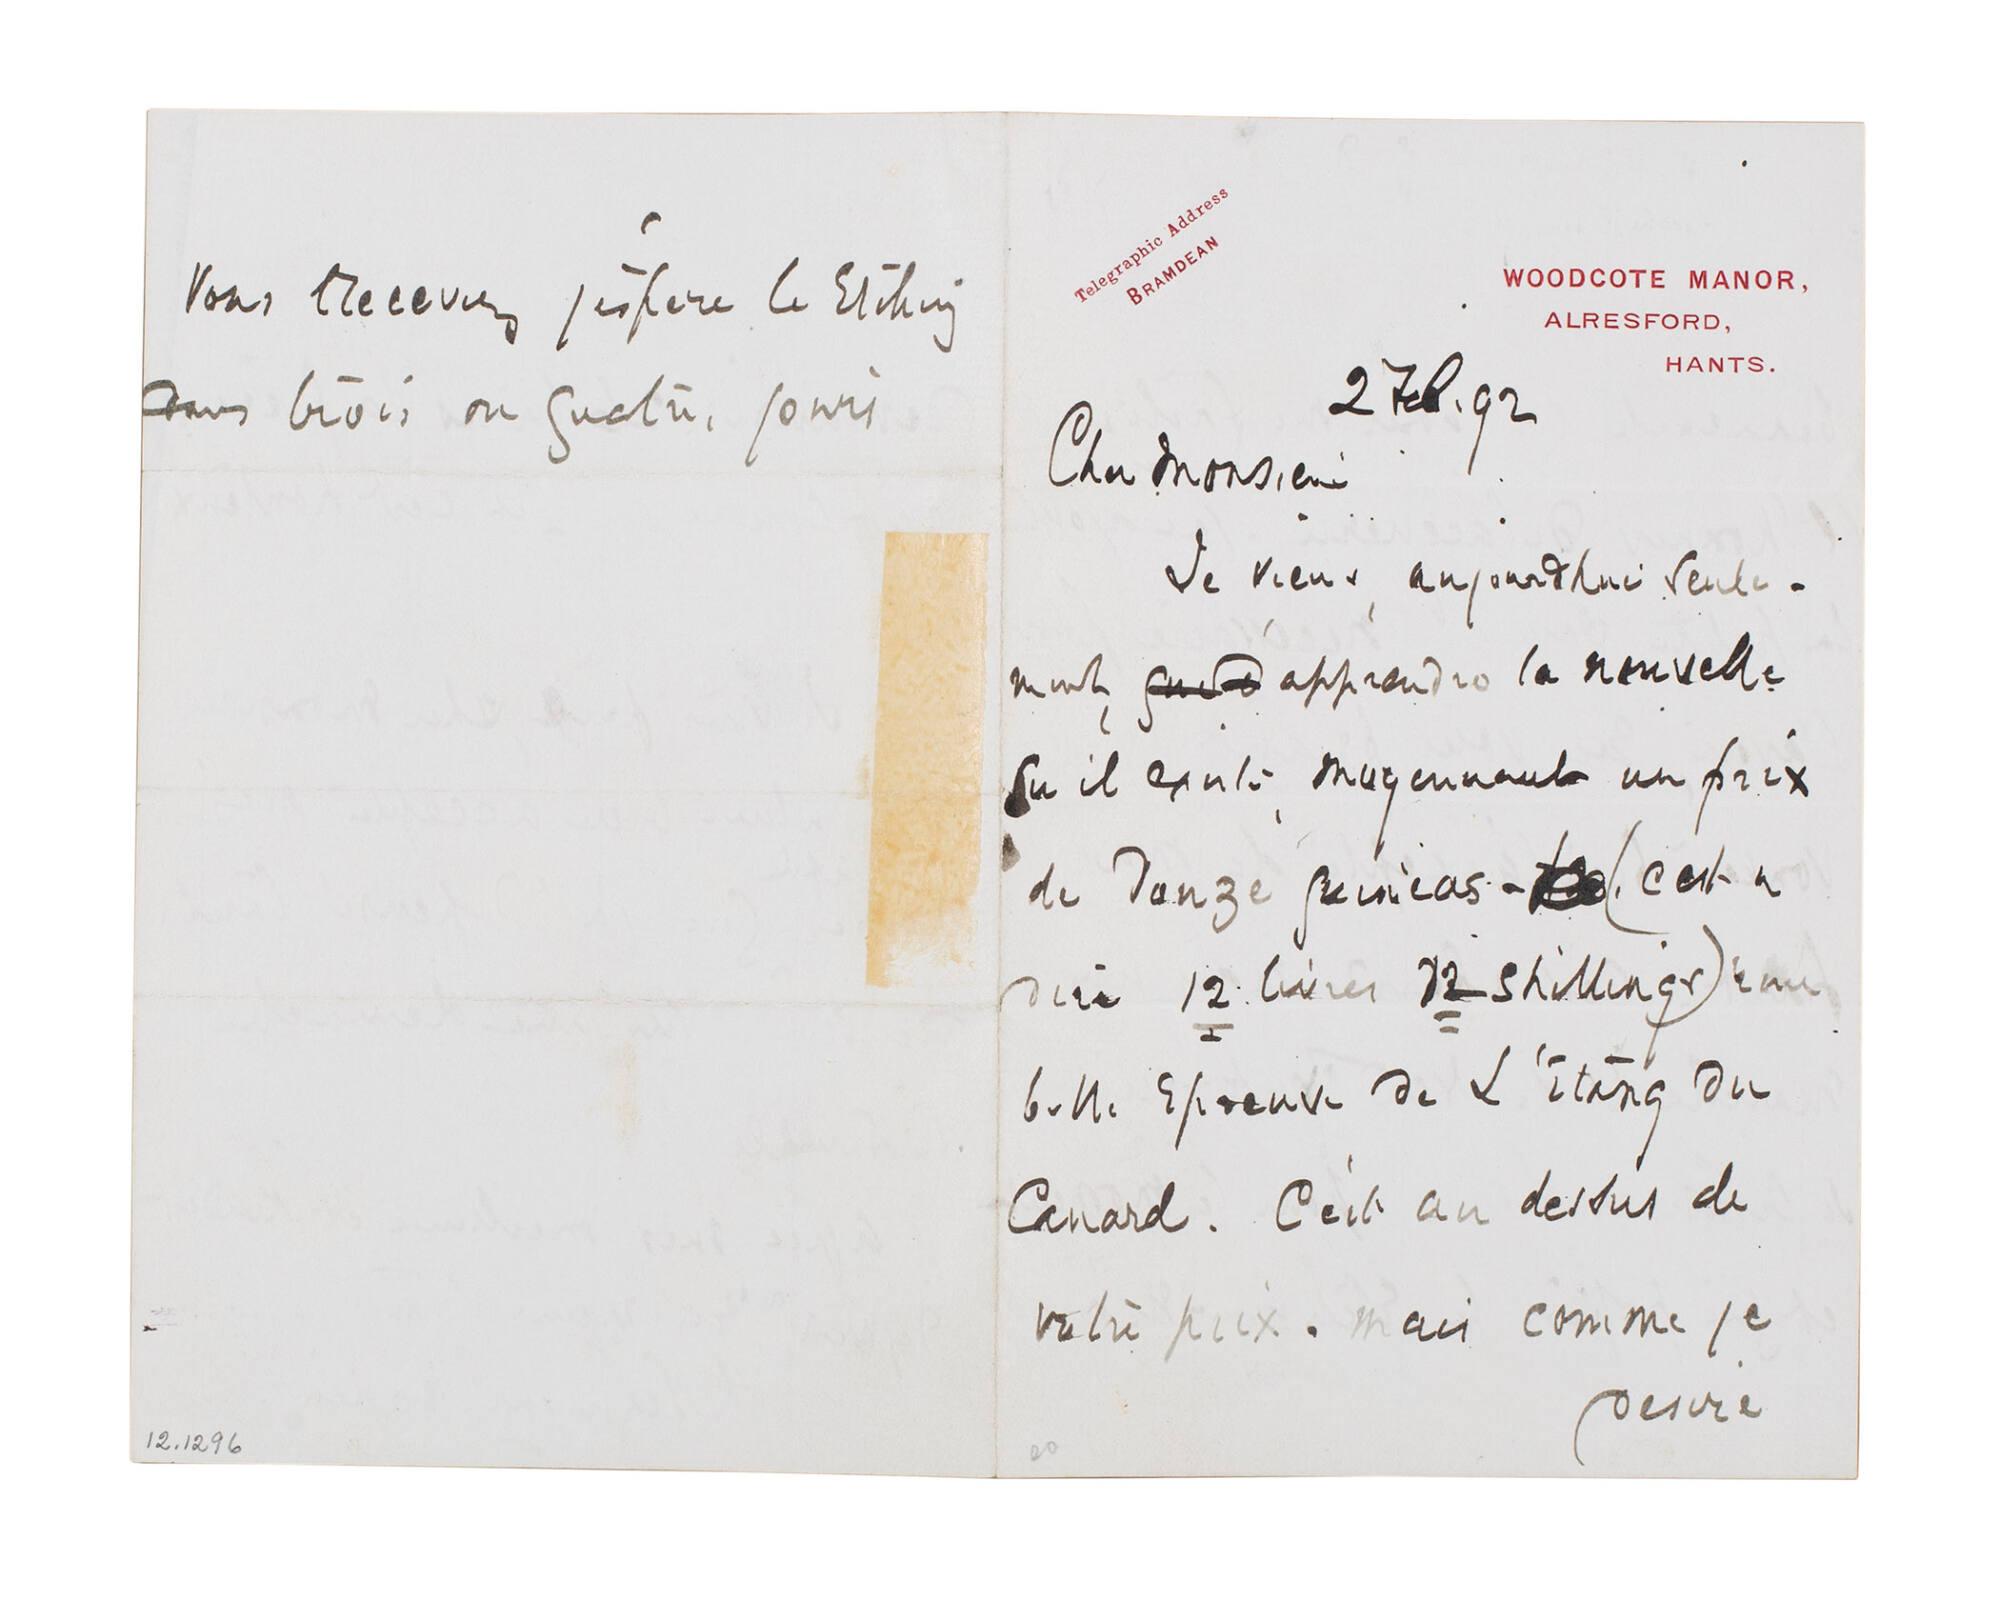 Vous recevrez j'éspère le Etching
dans trois ou quatre jours
12.1296
Telegraphic Address
BRAMDEAN
WOODCOTE MANOR,
ALRESFORD,
HANTS.
2 Feb. 92
Cher Monsieur
Je viens, aujourdhui seule-
ment, apprendre la nouvelle
qu il existe, moyennant un prix
de douze guineas - (c'est a
dire 12 livres 12 shillings) une
belle Epreuve de L'Étang du
Canard. C'est au dessus de
votre prix. mais comme je
desire